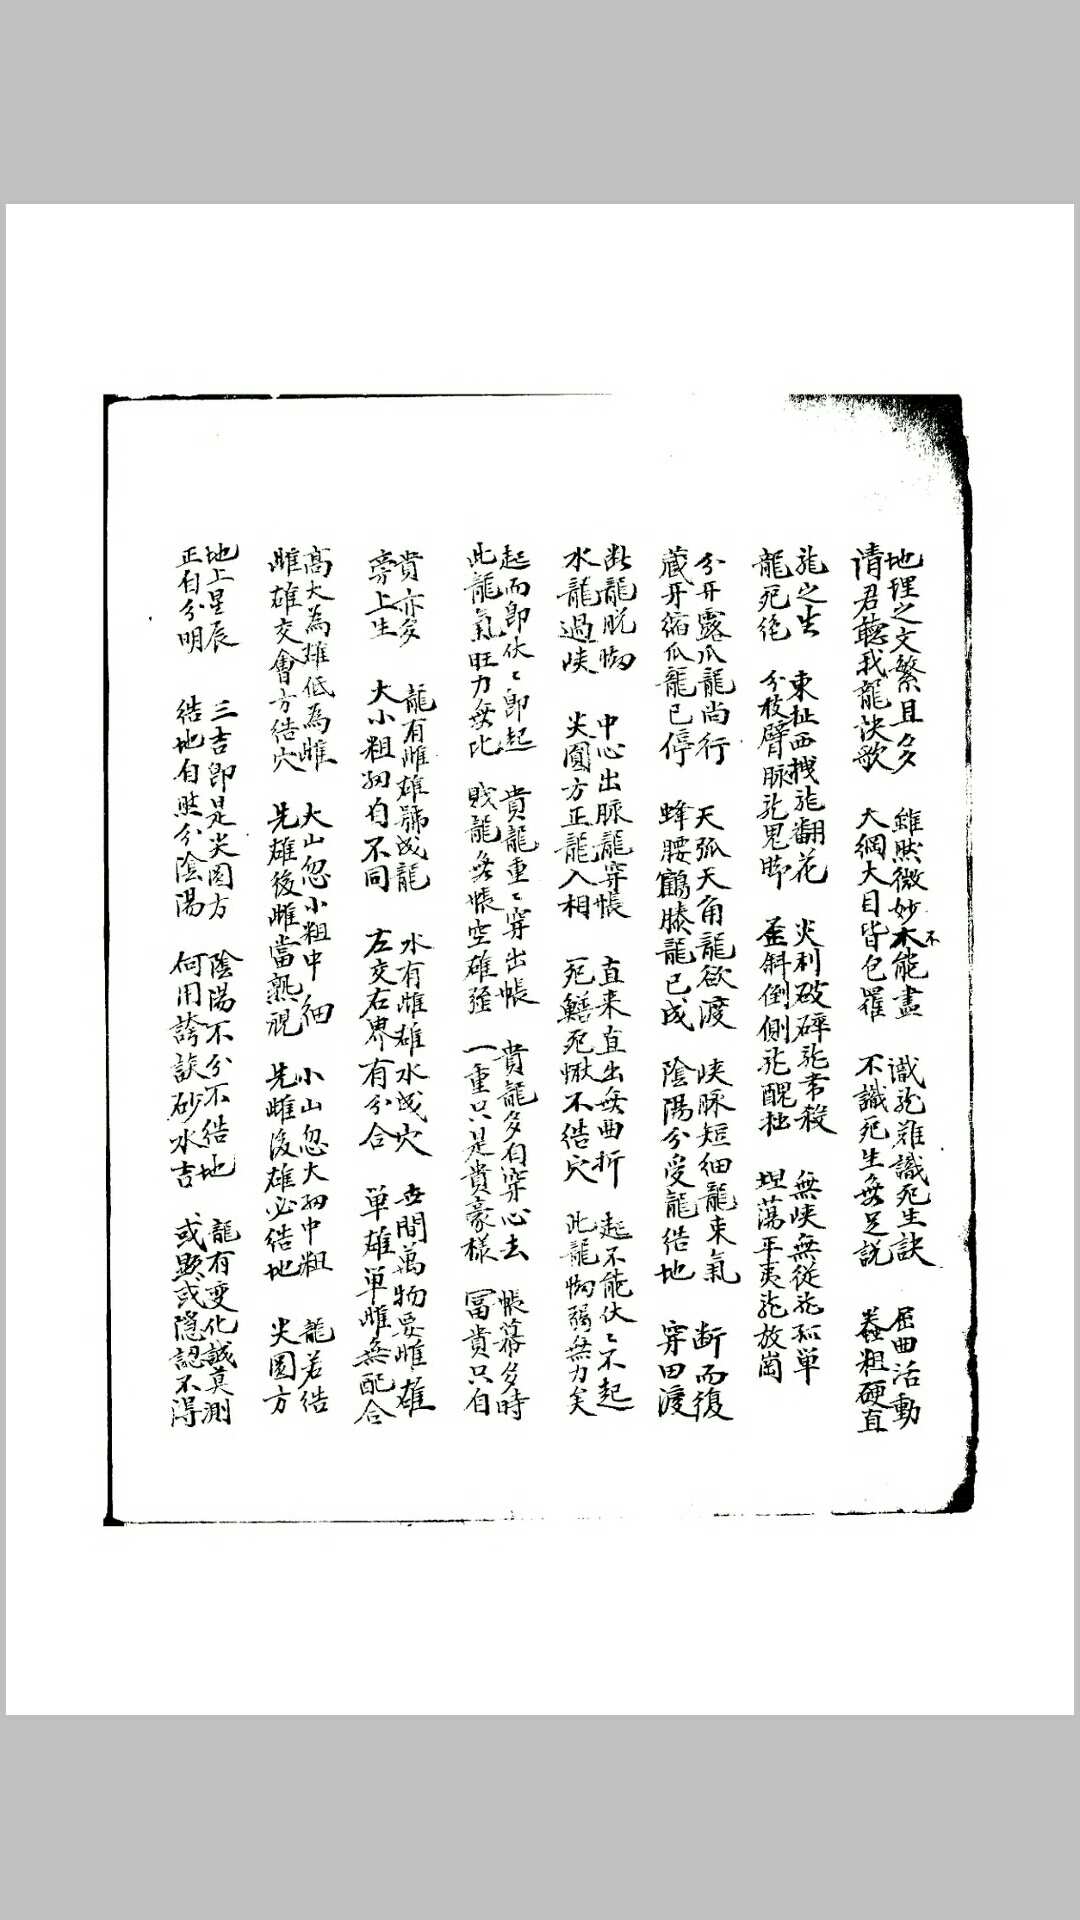 地理之文繁且多
清君聽我龍决歌
雖然微妙不能盡
大綱大目皆包羅
識龍難識死生訣
不識死生無足説
屈曲活動
蠢粗硬直
龍之生
龍死绝
東扯西拽龍翻花
分枝臂脉龍鬼却
尖利破碎龍帯殺
歪斜倒側龍醜拙
無峡無從龍孤単
坦蕩平夷龍放崗
分牙露爪龍尚行
藏牙縮爪龍已停
天弧天角龍欲渡
蜂腰鶴膝龍已成
峡脉短細龍束氣
陰陽分受龍结地
断而復
穿田渡
断龍脱㓜
水龍過峡
中心出脉龍穿帳
尖圓方正龍入相
直来直出無曲折
死鱔死鰍不结穴
起不能伏〻不起
此龍㓜弱無力矣
起而即伏〻即起
此龍氣旺力無比
貴龍重〻穿出帳
賎龍無帳空雄强
貴龍多自穿心去
一重只是貴豪樣
帳幕多時
冨貴只自
貴亦多
旁上生
龍有雌雄號成龍
大小粗㓜自不同
水有雌雄水成穴
左交右界有分合
世間萬物要雌雄
単雄単雌無配合
高大為雄低為雌
雌雄交會方结穴
大山忽小粗中細
先雄後雌當熟視
小山忽大㓜中粗
先雌後雄必结地
龍若结
尖圓方
地上星辰
正自分明
三吉即是尖圓方
结地自然分陰陽
陰陽不分不结地
何用誇談砂水吉
龍有变化誠莫測
或顯或隱認不得